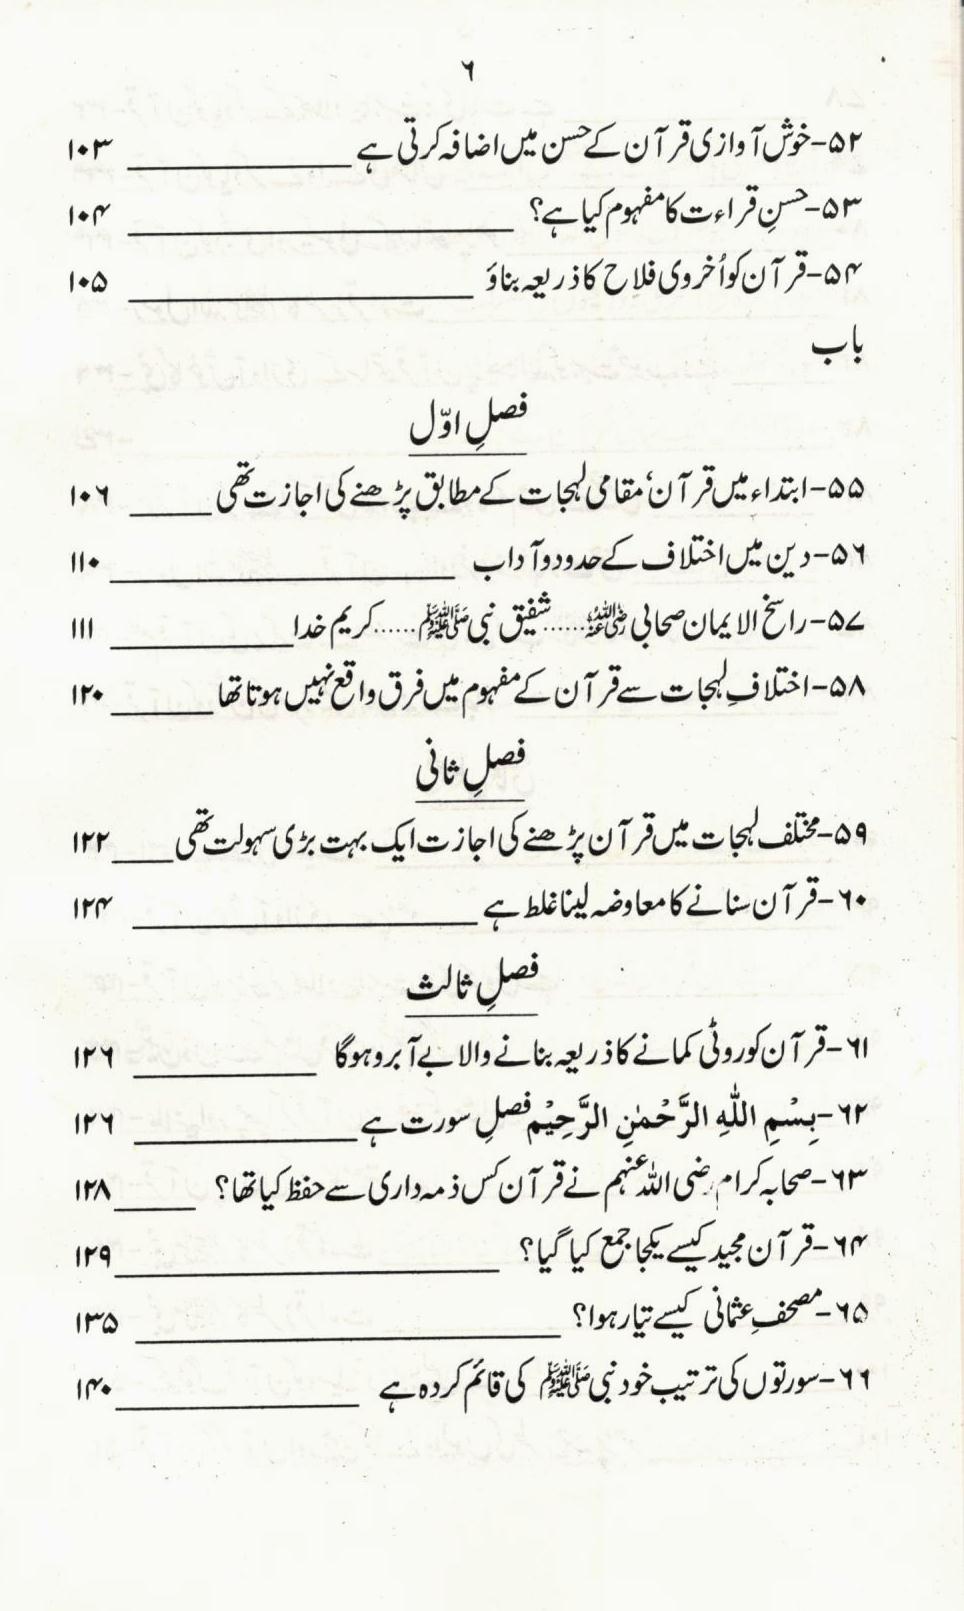 ۶
۵۲-خوش آوازی قرآن کے حسن میں اضافہ کرتی ہے ۱۰۳
۵۳-حسنِ قراءت کا مفہوم کیا ہے؟ ۱۰۴
۵۴-قرآن کو اُخروی فلاح کا ذریعہ بناؤ ۱۰۵
باب
فصلِ اوّل
۵۵-ابتداء میں قرآن، مقامی لہجات کے مطابق پڑھنے کی اجازت تھی ۱۰۶
۵۶-دین میں اختلاف کے حدود و آداب ۱۱۰
۵۷-راسخ الایمان صحابی رضی اللہ عنہ......شفیق نبی ﷺ......کریم خدا ۱۱۱
۵۸-اختلافِ لہجات سے قرآن کے مفہوم میں فرق واقع نہیں ہوتا تھا ۱۲۰
فصلِ ثانی
۵۹-مختلف لہجات میں قرآن پڑھنے کی اجازت ایک بہت بڑی سہولت تھی ۱۲۲
۶۰-قرآن سنانے کا معاوضہ لینا غلط ہے ۱۲۴
فصلِ ثالث
۶۱-قرآن کو روٹی کمانے کا ذریعہ بنانے والا بے آبرو ہوگا ۱۲۶
۶۲-بِسْمِ اللّٰهِ الرَّحْمٰنِ الرَّحِيْمِ فصلِ سورت ہے ۱۲۶
۶۳-صحابہ کرام رضی اللہ عنہم نے قرآن کس ذمہ داری سے حفظ کیا تھا؟ ۱۲۸
۶۴-قرآن مجید کیسے یکجا جمع کیا گیا؟ ۱۲۹
۶۵-مصحفِ عثمانی کیسے تیار ہوا؟ ۱۳۵
۶۶-سورتوں کی ترتیب خود نبی ﷺ کی قائم کردہ ہے ۱۴۰